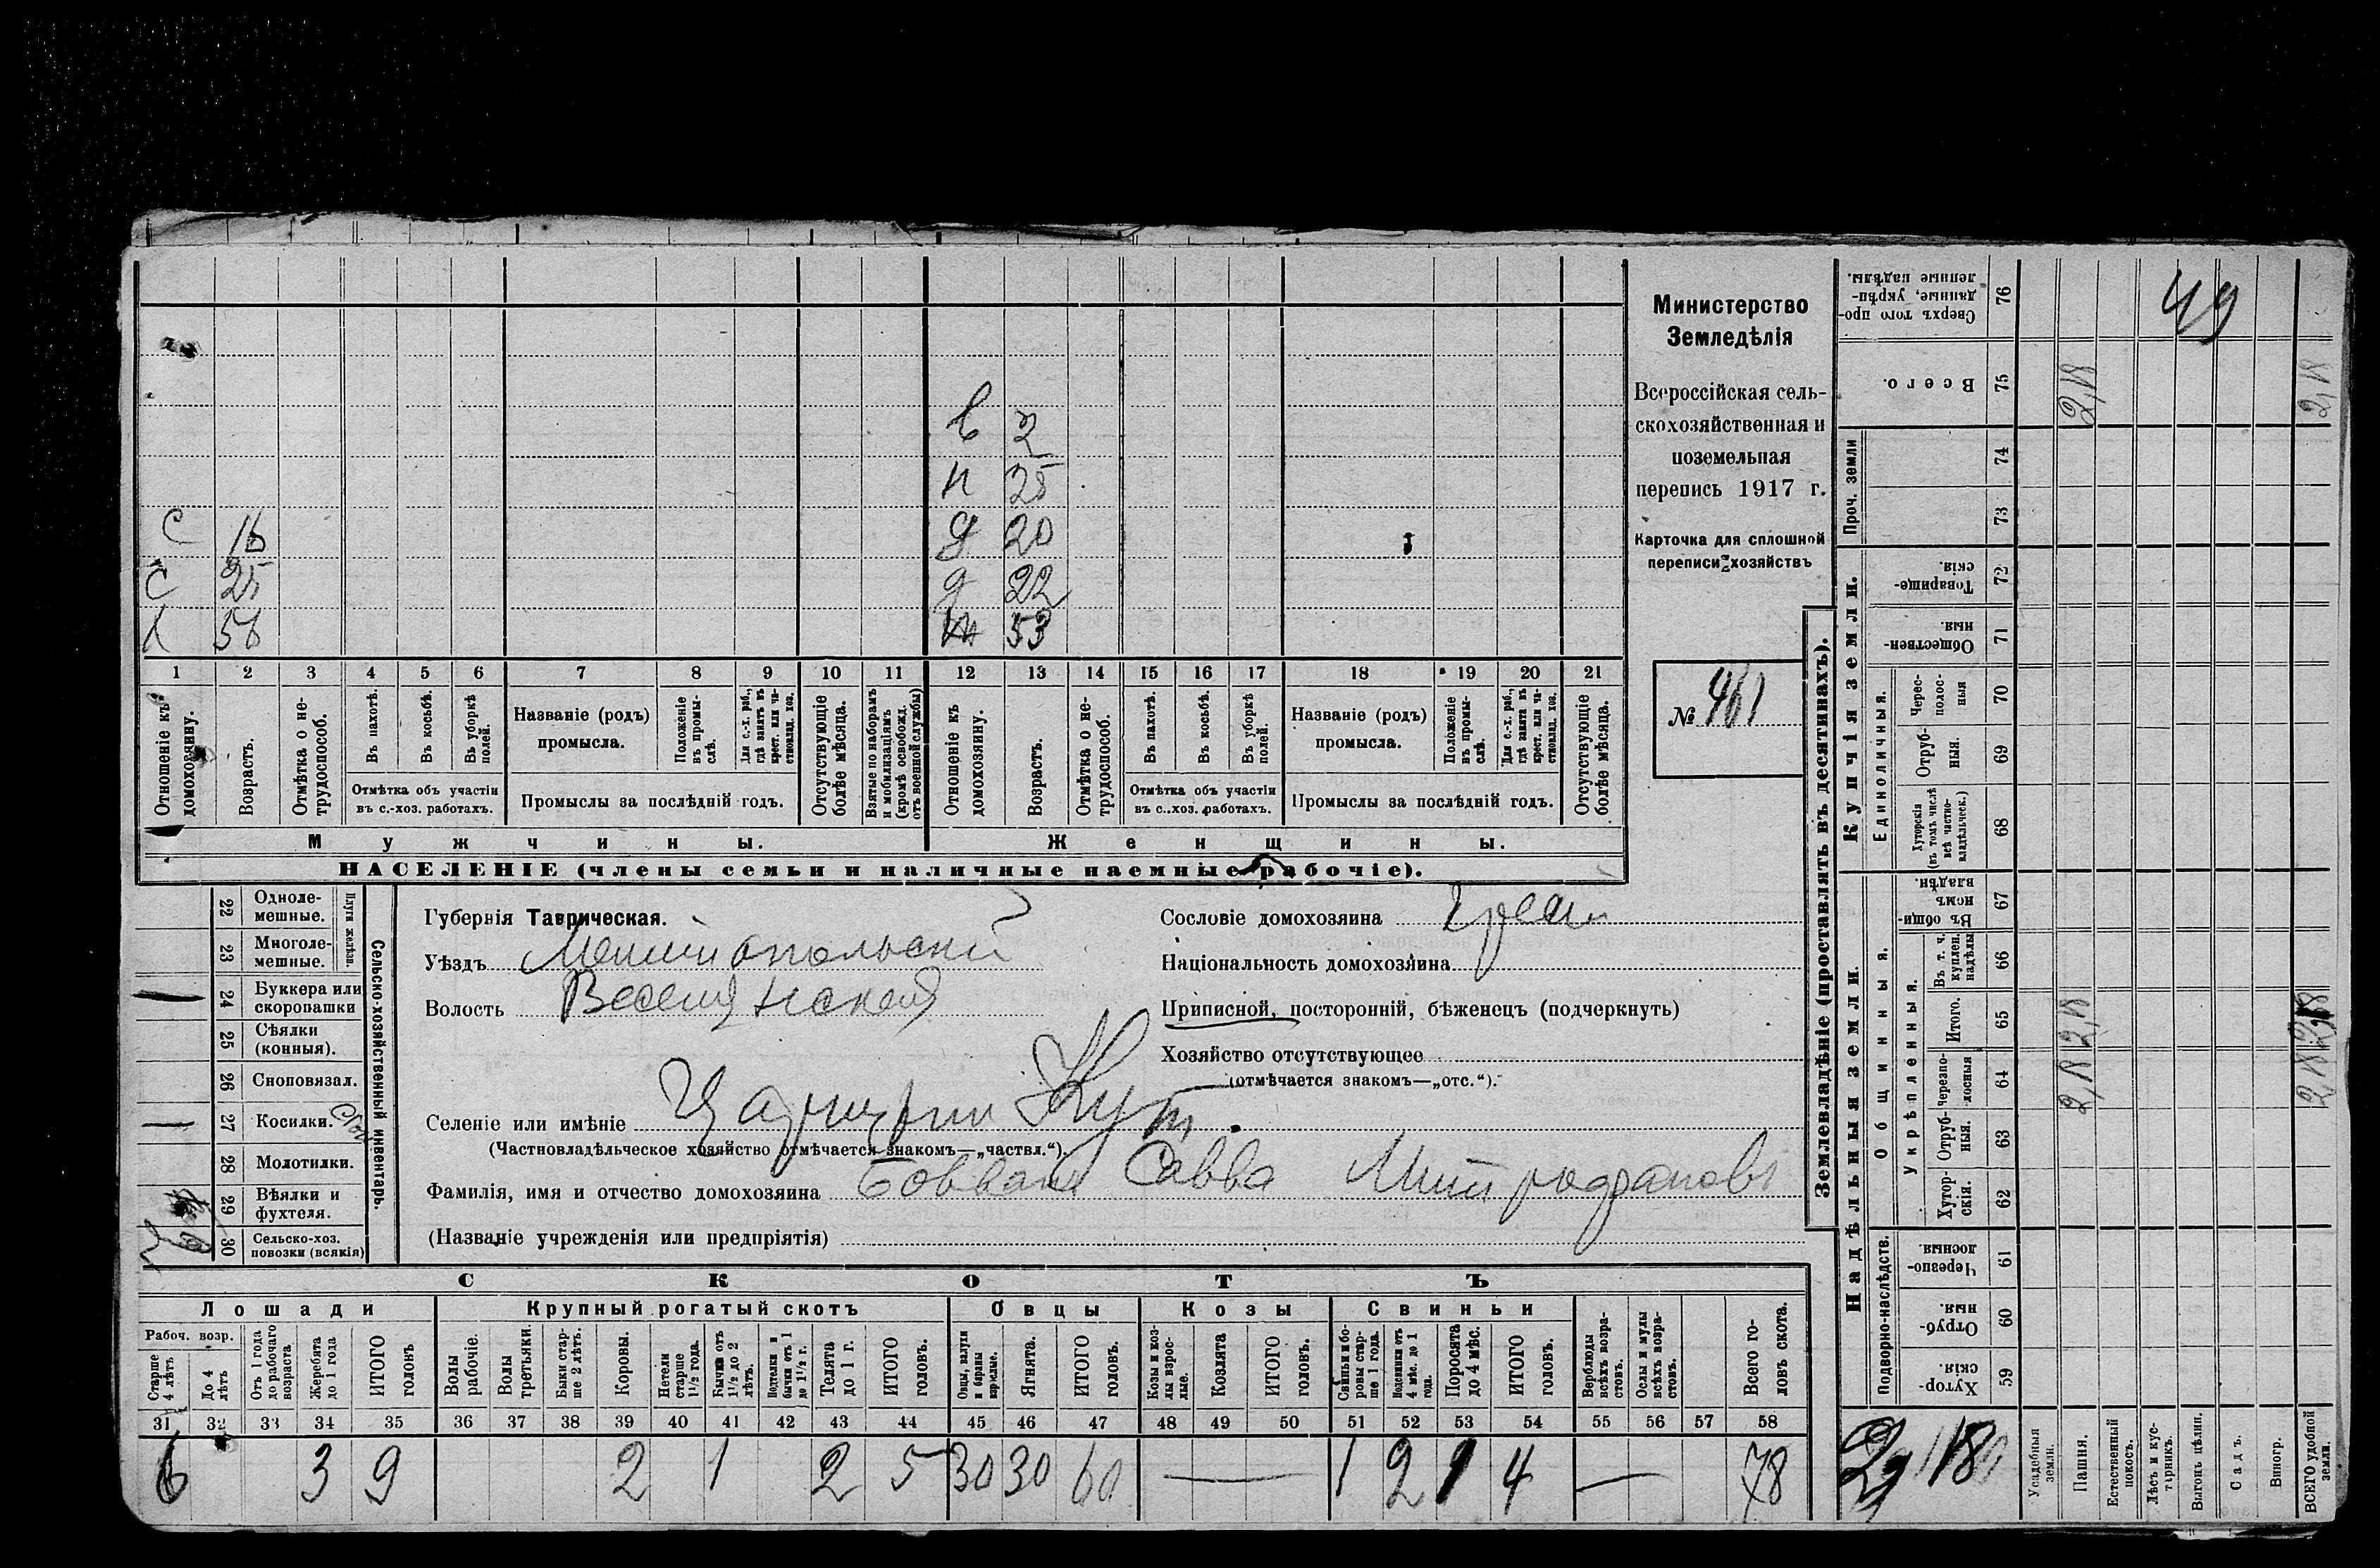 Министерство
Земледѣлія
Всероссійская сель-
скохозяйственная и
поземельная
перепись 1917 г.
Карточка для сплошной
переписи хозяйствъ
№ 461
в 2
н 25
С 16 д 20
С 25 д 22
х 56 ж 53
1 2 3 4 5 6 7 8 9 10 11 12 13 14 15 16 17 18 19 20 21
Отношеніе къ домохозяину.
Возрастъ.
Отмѣтка о не-трудоспособ.
Въ пахотѣ.
Въ косьбѣ.
Въ уборкѣ полей.
Отмѣтка объ участіи
въ с.-хоз. работахъ.
Названіе (родъ)
промысла.
Положеніе въ промы-слѣ.
Для с.-х. раб., гдѣ занятъ въ крест. или ча-стновлад. хоз.
Промыслы за послѣдній годъ.
Отсутствующіе болѣе мѣсяца.
Взятые по наборамъ и мобилизаціямъ (кромѣ освобожд. отъ военной службы)
Отношеніе къ домохозяину.
Возрастъ.
Отмѣтка о не-трудоспособ.
Въ пахотѣ.
Въ косьбѣ.
Въ уборкѣ полей.
Отмѣтка объ участіи
въ с.-хоз. работахъ.
Названіе (родъ)
промысла.
Положеніе въ промы-слѣ.
Для с.-х. раб., гдѣ занята въ крест. или ча-стновлад. хоз.
Промыслы за послѣдній годъ.
Отсутствующіе болѣе мѣсяца.
Мужчины. Женщины.
НАСЕЛЕНІЕ (члены семьи и наличные наемные рабочіе).
Сельско-хозяйственный инвентарь.
Плуги желѣзн.
22 Одноле-мешные.
23 Многоле-мешные.
24 Буккера или скоропашки
25 Сѣялки (конныя).
26 Сноповязал.
27 Косилки.
28 Молотилки.
29 Вѣялки и фухтеля.
30 Сельско-хоз. повозки (всякія)
Губернія Таврическая.
Уѣздъ Мелитопольскій
Волость Веселянская
Селеніе или имѣніе Царицын Кут
(Частновладѣльческое хозяйство отмѣчается знакомъ—„частвл.“).
Фамилія, имя и отчество домохозяина Бовкат Савва Митрофановъ
(Названіе учрежденія или предпріятія)
Сословіе домохозяина
Національность домохозяина
Приписной, посторонній, бѣженецъ (подчеркнуть)
Хозяйство отсутствующее
(отмѣчается знакомъ—„отс.“).
СКОТЪ
Лошади Крупный рогатый скотъ Овцы Козы Свиньи
Рабоч. возр.
Старше 4 лѣтъ
До 4 лѣтъ
Отъ 1 года до рабочаго возраста
Жеребята до 1 года
ИТОГО головъ
Волы рабочіе.
Волы третьяки.
Быки стар-ше 2 лѣтъ.
Коровы.
Нетели старше 1½ года.
Бычки отъ 1½ до 2 лѣтъ.
Подтелки и бычки отъ 1 до 1½ г.
Телята до 1 г.
ИТОГО головъ.
Овцы, валухи и бараны взрослые.
Ягнята.
ИТОГО головъ.
Козы и коз-лы взрос-лые.
Козлята
ИТОГО головъ.
Свиньи и бо-ровы стар-ше 1 года.
Подсвинки отъ 4 мѣс. до 1 года.
Поросята до 4 мѣс.
ИТОГО головъ.
Верблюды всѣхъ возра-стовъ.
Ослы и мулы всѣхъ возра-стовъ.
Всего го-ловъ скота.
31 32 33 34 35 36 37 38 39 40 41 42 43 44 45 46 47 48 49 50 51 52 53 54 55 56 57 58
6 3 9 2 1 2 5 30 30 60 — 1 2 1 4 — 78
Землевладѣніе (проставлять въ десятинахъ).
Надѣльныя земли. Купчія земли.
Подворно-наслѣдств.
Общинныя.
Укрѣпленныя.
Единоличныя.
Проч. земли
59 Хутор-скія.
60 Отруб-ныя.
61 Черезпо-лосныя.
62 Хутор-скія.
63 Отруб-ныя.
64 Черезпо-лосныя
65 Итого.
66 Въ т. ч. куплен. надѣлы
67 Въ общи-номъ владѣн.
68 Хуторскія (въ томъ числѣ всѣ частно-владѣльческ.)
69 Отруб-ныя.
70 Черес-полос-ныя
71 Обществен-ныя.
72 Товарище-скія.
73
74
75 Всего.
76 Сверхъ того про-данные, укрѣп-ленные надѣлы.
49
Усадебныя земли.
Пашня. 2,18 2,18 2,18
Естественный покосъ.
Лѣсъ и кус-тарникъ.
Выгонъ цѣлин.
Садъ.
Виногр.
ВСЕГО удобной земли. 2,18 2,18 2,18